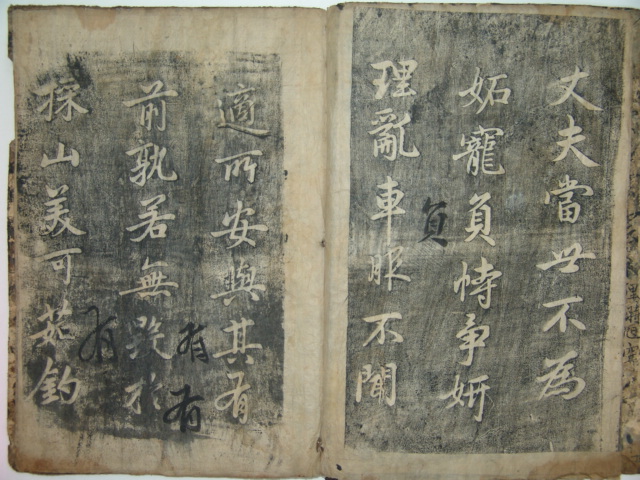 丈夫當世不為
妬寵負恃爭妍
負
理亂車服不聞
適所安與其有
有
有
前孰若無毀於
有
採山美可茹釣